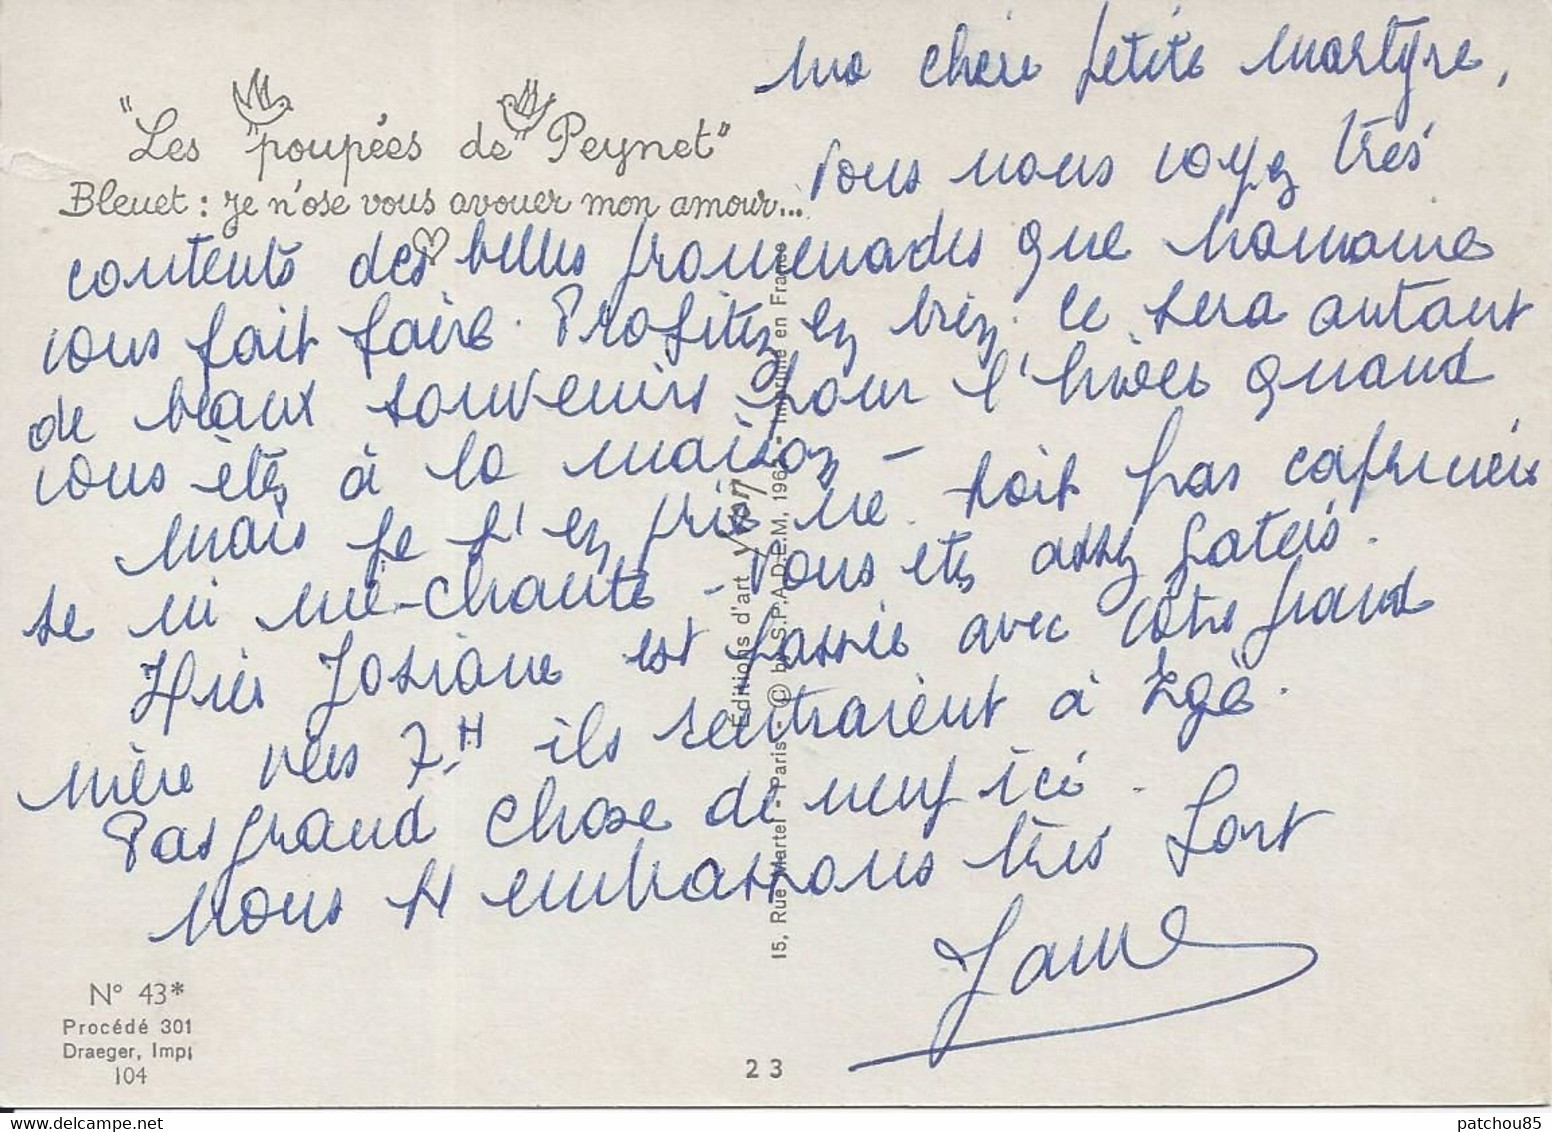 Ma chère petite Martyre,
"Les poupées de Peynet"
Bleuet : je n'ose vous avouer mon amour...
vous nous voyez très
contents des belles promenades que maman
vous fait faire. Profitez en bien. Ce sera autant
de beaux souvenirs pour l'hiver quand
vous êtes à la maison -
Mais je t'en prie ne soit pas capricieu
se ni mé-chante - vous etes assez gateés.
Hier Josiane est passée avec votre grand
mère vers 7H ils rentraient à
Pas grand chose de neuf ici.
Nous t'embrassons très fort
Éditions d'art Yvon
15, Rue Martel - Paris - © by S.P.A.D.E.M, 196 - Imprimé en France
N° 43*
Procédé 301
Draeger, Imp
104
23
delcampe.net
patchou85